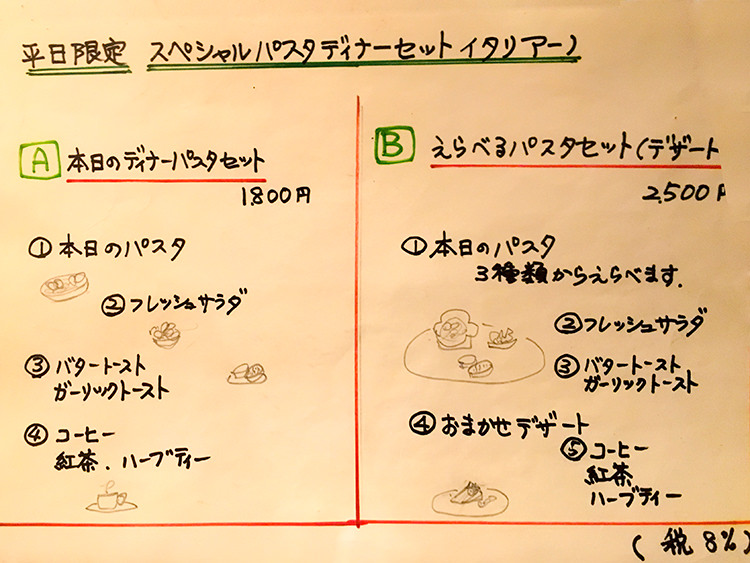 平日限定 スペシャルパスタディナーセット イタリアーノ
A 本日のディナーパスタセット
1,800円
① 本日のパスタ
② フレッシュサラダ
③ バタートースト
ガーリックトースト
④ コーヒー
紅茶、ハーブティー
B えらべるパスタセット(デザート
2,500円
① 本日のパスタ
3種類からえらべます.
② フレッシュサラダ
③ バタートースト
ガーリックトースト
④ おまかせデザート
⑤ コーヒー
紅茶
ハーブティー
(税 8%)